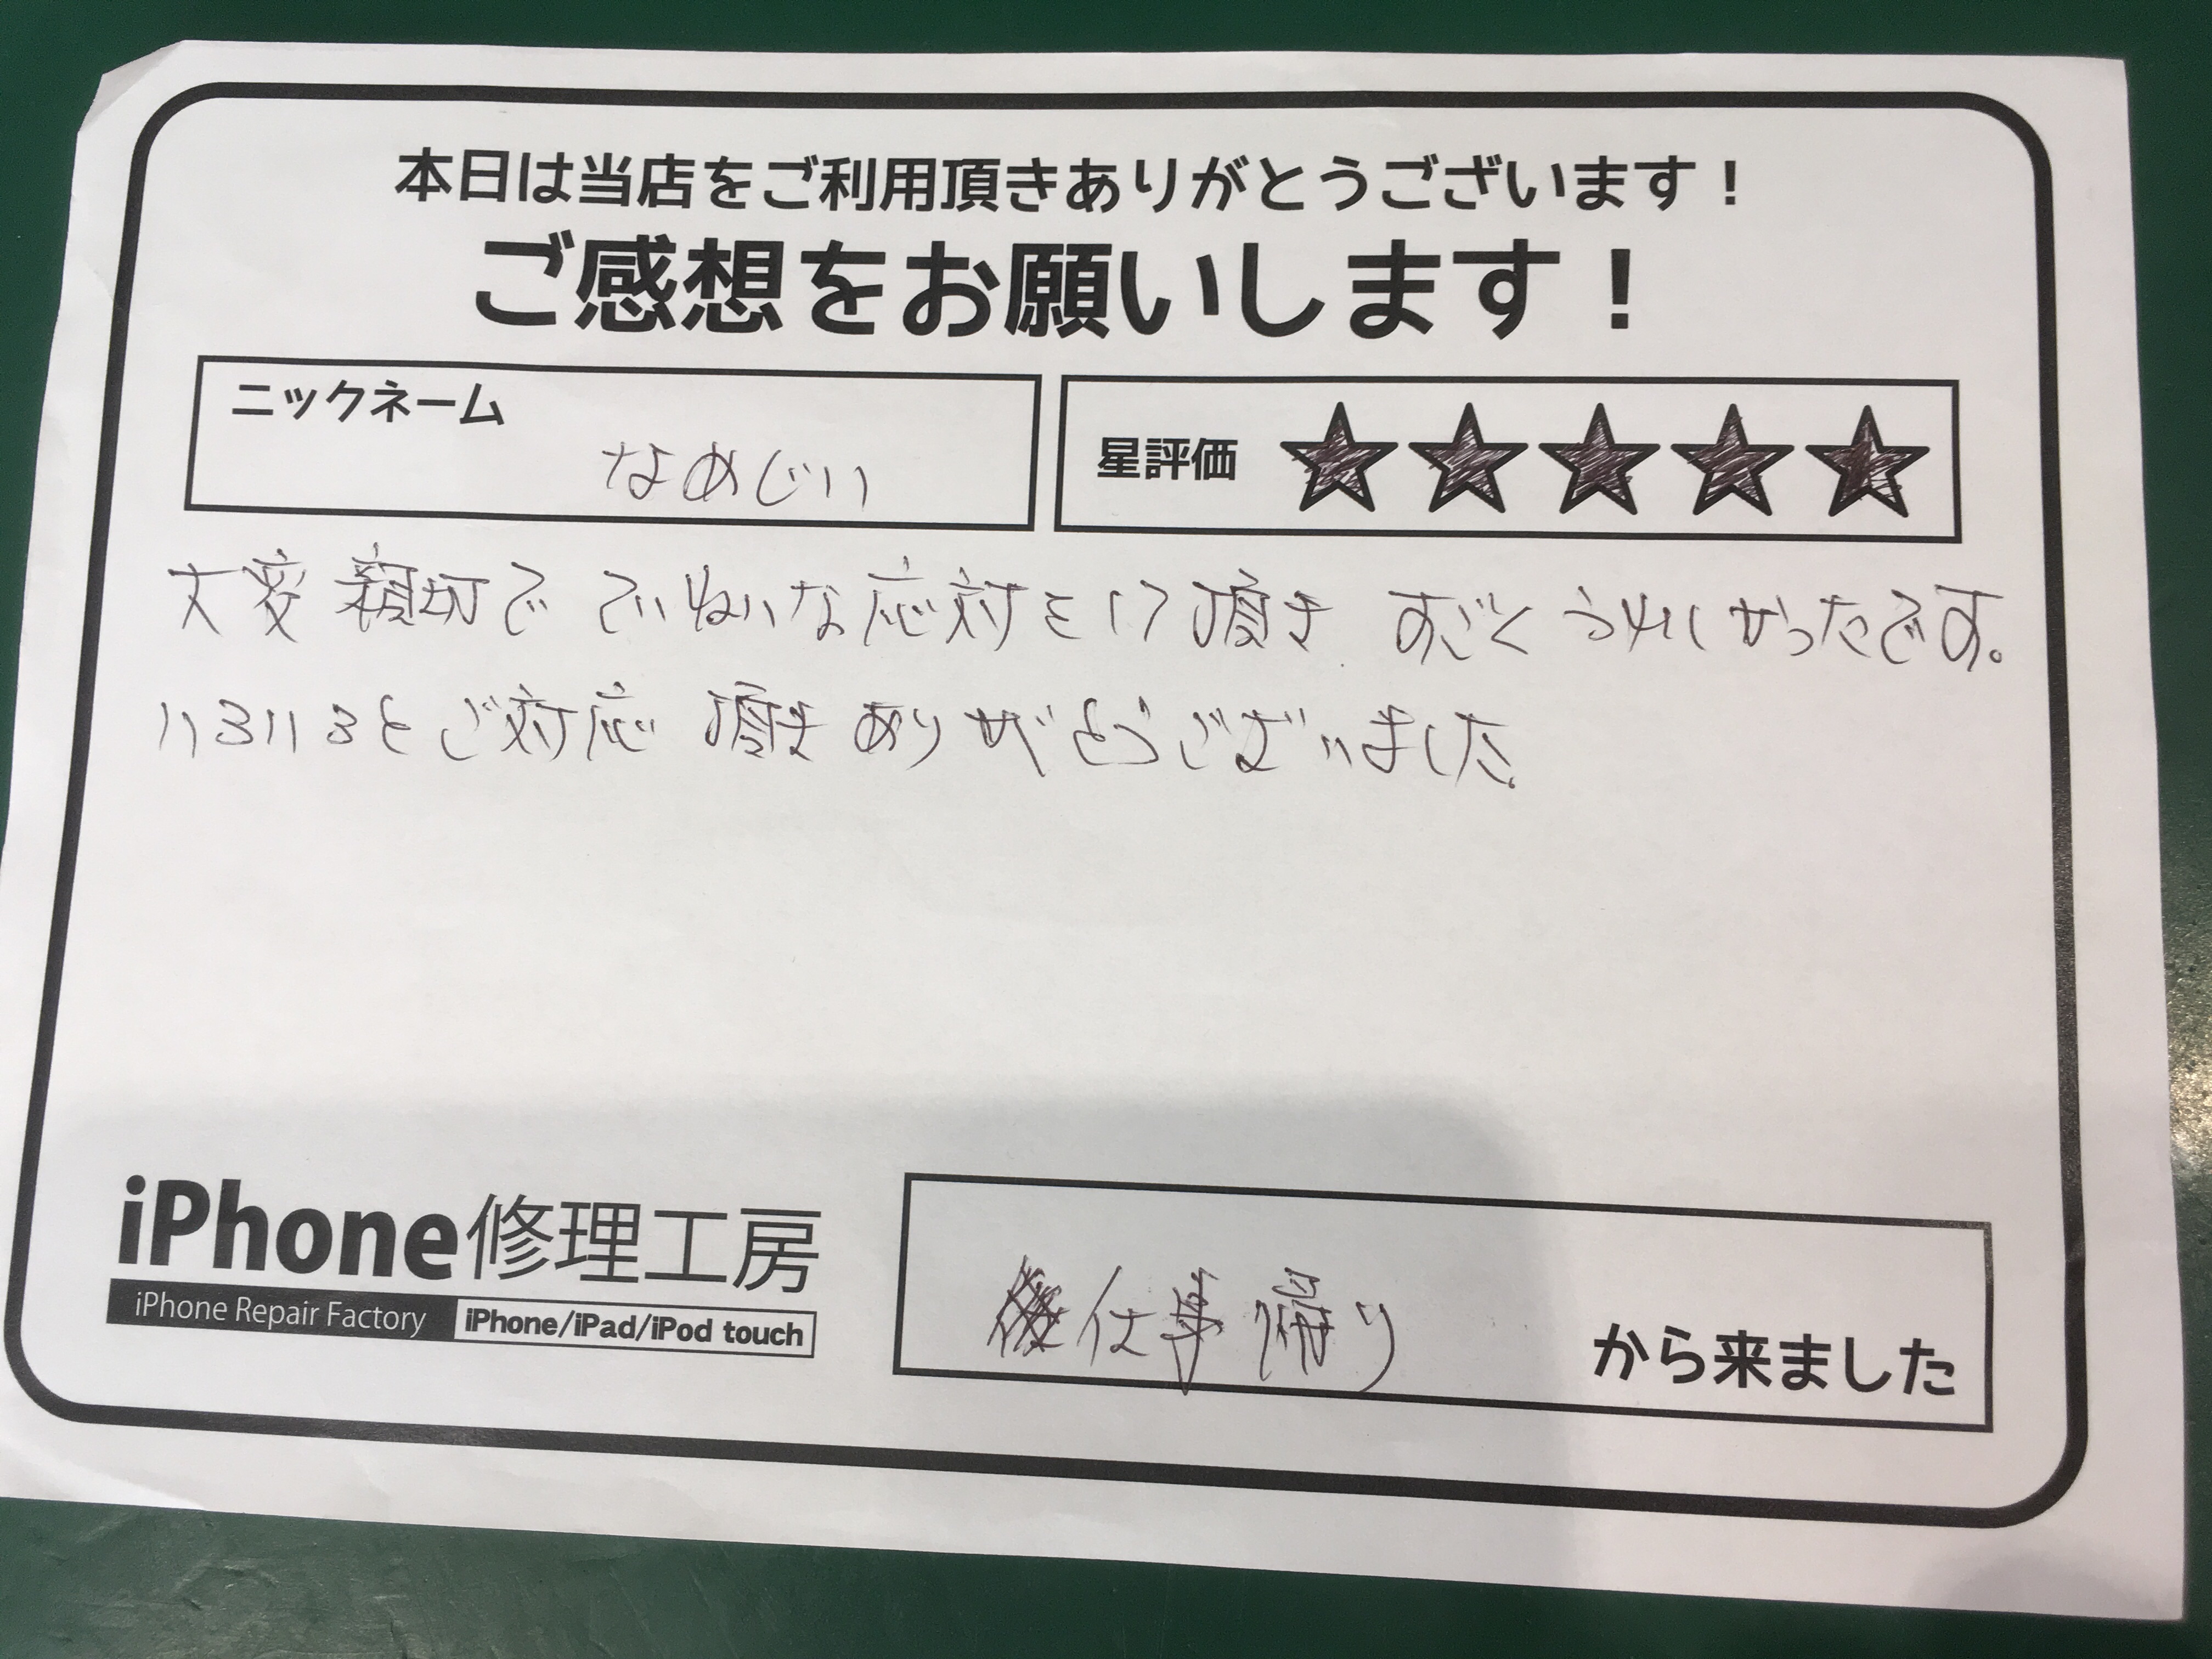 本日は当店をご利用頂きありがとうございます！
ご感想をお願いします！
ニックネーム
なめじい
星評価 ★★★★★
大変親切で ていねいな応対をして頂き すごくうれしかったです。
いろいろとご対応 頂きありがとうございました。
iPhone修理工房
iPhone Repair Factory iPhone/iPad/iPod touch
仕事帰り から来ました